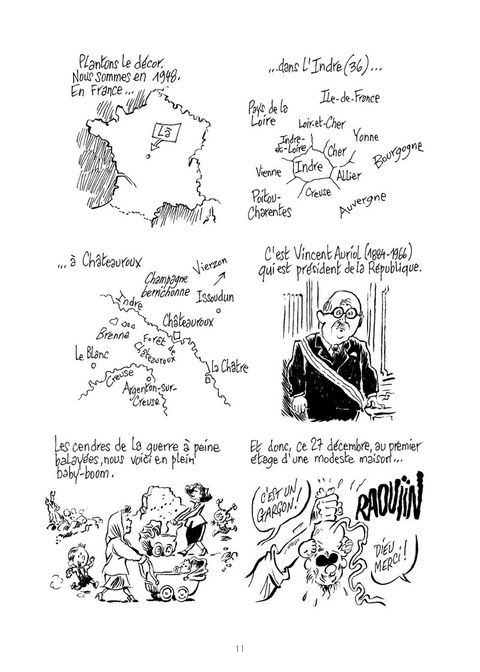 Plantons le décor.
Nous sommes en 1948.
En France...
Là
...dans l'Indre (36)...
Île-de-France
Pays de la
Loire
Loir-et-Cher
Yonne
Indre-
et-Loire
Cher
Bourgogne
Vienne
Indre
Allier
Poitou-
Charentes
Creuse
Auvergne
...à Châteauroux
Vierzon
Champagne
berrichonne
Issoudun
Indre
Châteauroux
Brenne
Forêt
de
Châteauroux
Le Blanc
La Châtre
Creuse
Argenton-sur-
Creuse
C'est Vincent Auriol (1884-1966)
qui est président de la République.
Les cendres de la guerre à peine
balayées, nous voici en plein
baby-boom.
Et donc, ce 27 décembre, au premier
étage d'une modeste maison...
C'EST UN
GARÇON!
RAOUIIN
DIEU
MERCI!
11